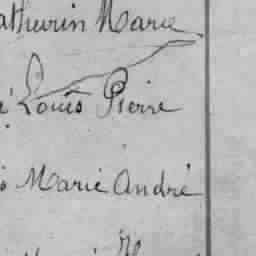 athurin Marie
Louis Pierre
Marie André